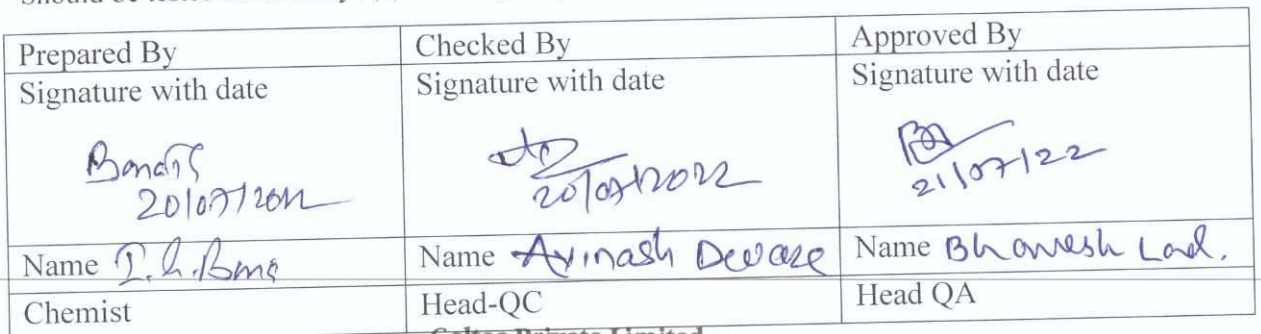 Prepared By
Checked By
Approved By
Signature with date
Signature with date
Signature with date
20/07/2022
20/07/2022
21/07/22
Name
Name Avinash Deware
Name Bhavesh Lad.
Chemist
Head-QC
Head QA
Private Limited